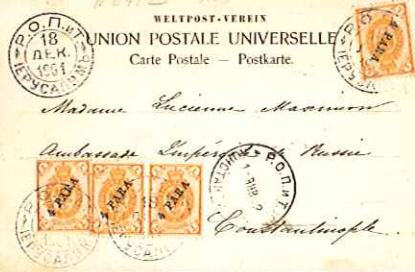 WELTPOST-VEREIN
UNION POSTALE UNIVERSELLE
Carte Postale — Postkarte.
Р.О.П.иТ.
18
ДЕК.
1901
ІЕРУСАЛИМЪ
4 PARA
Madame Lucienne
Ambassade Impériale de Russie
4 PARA
4 PARA
4 PARA
Р.О.П.иТ.
Constantinople.